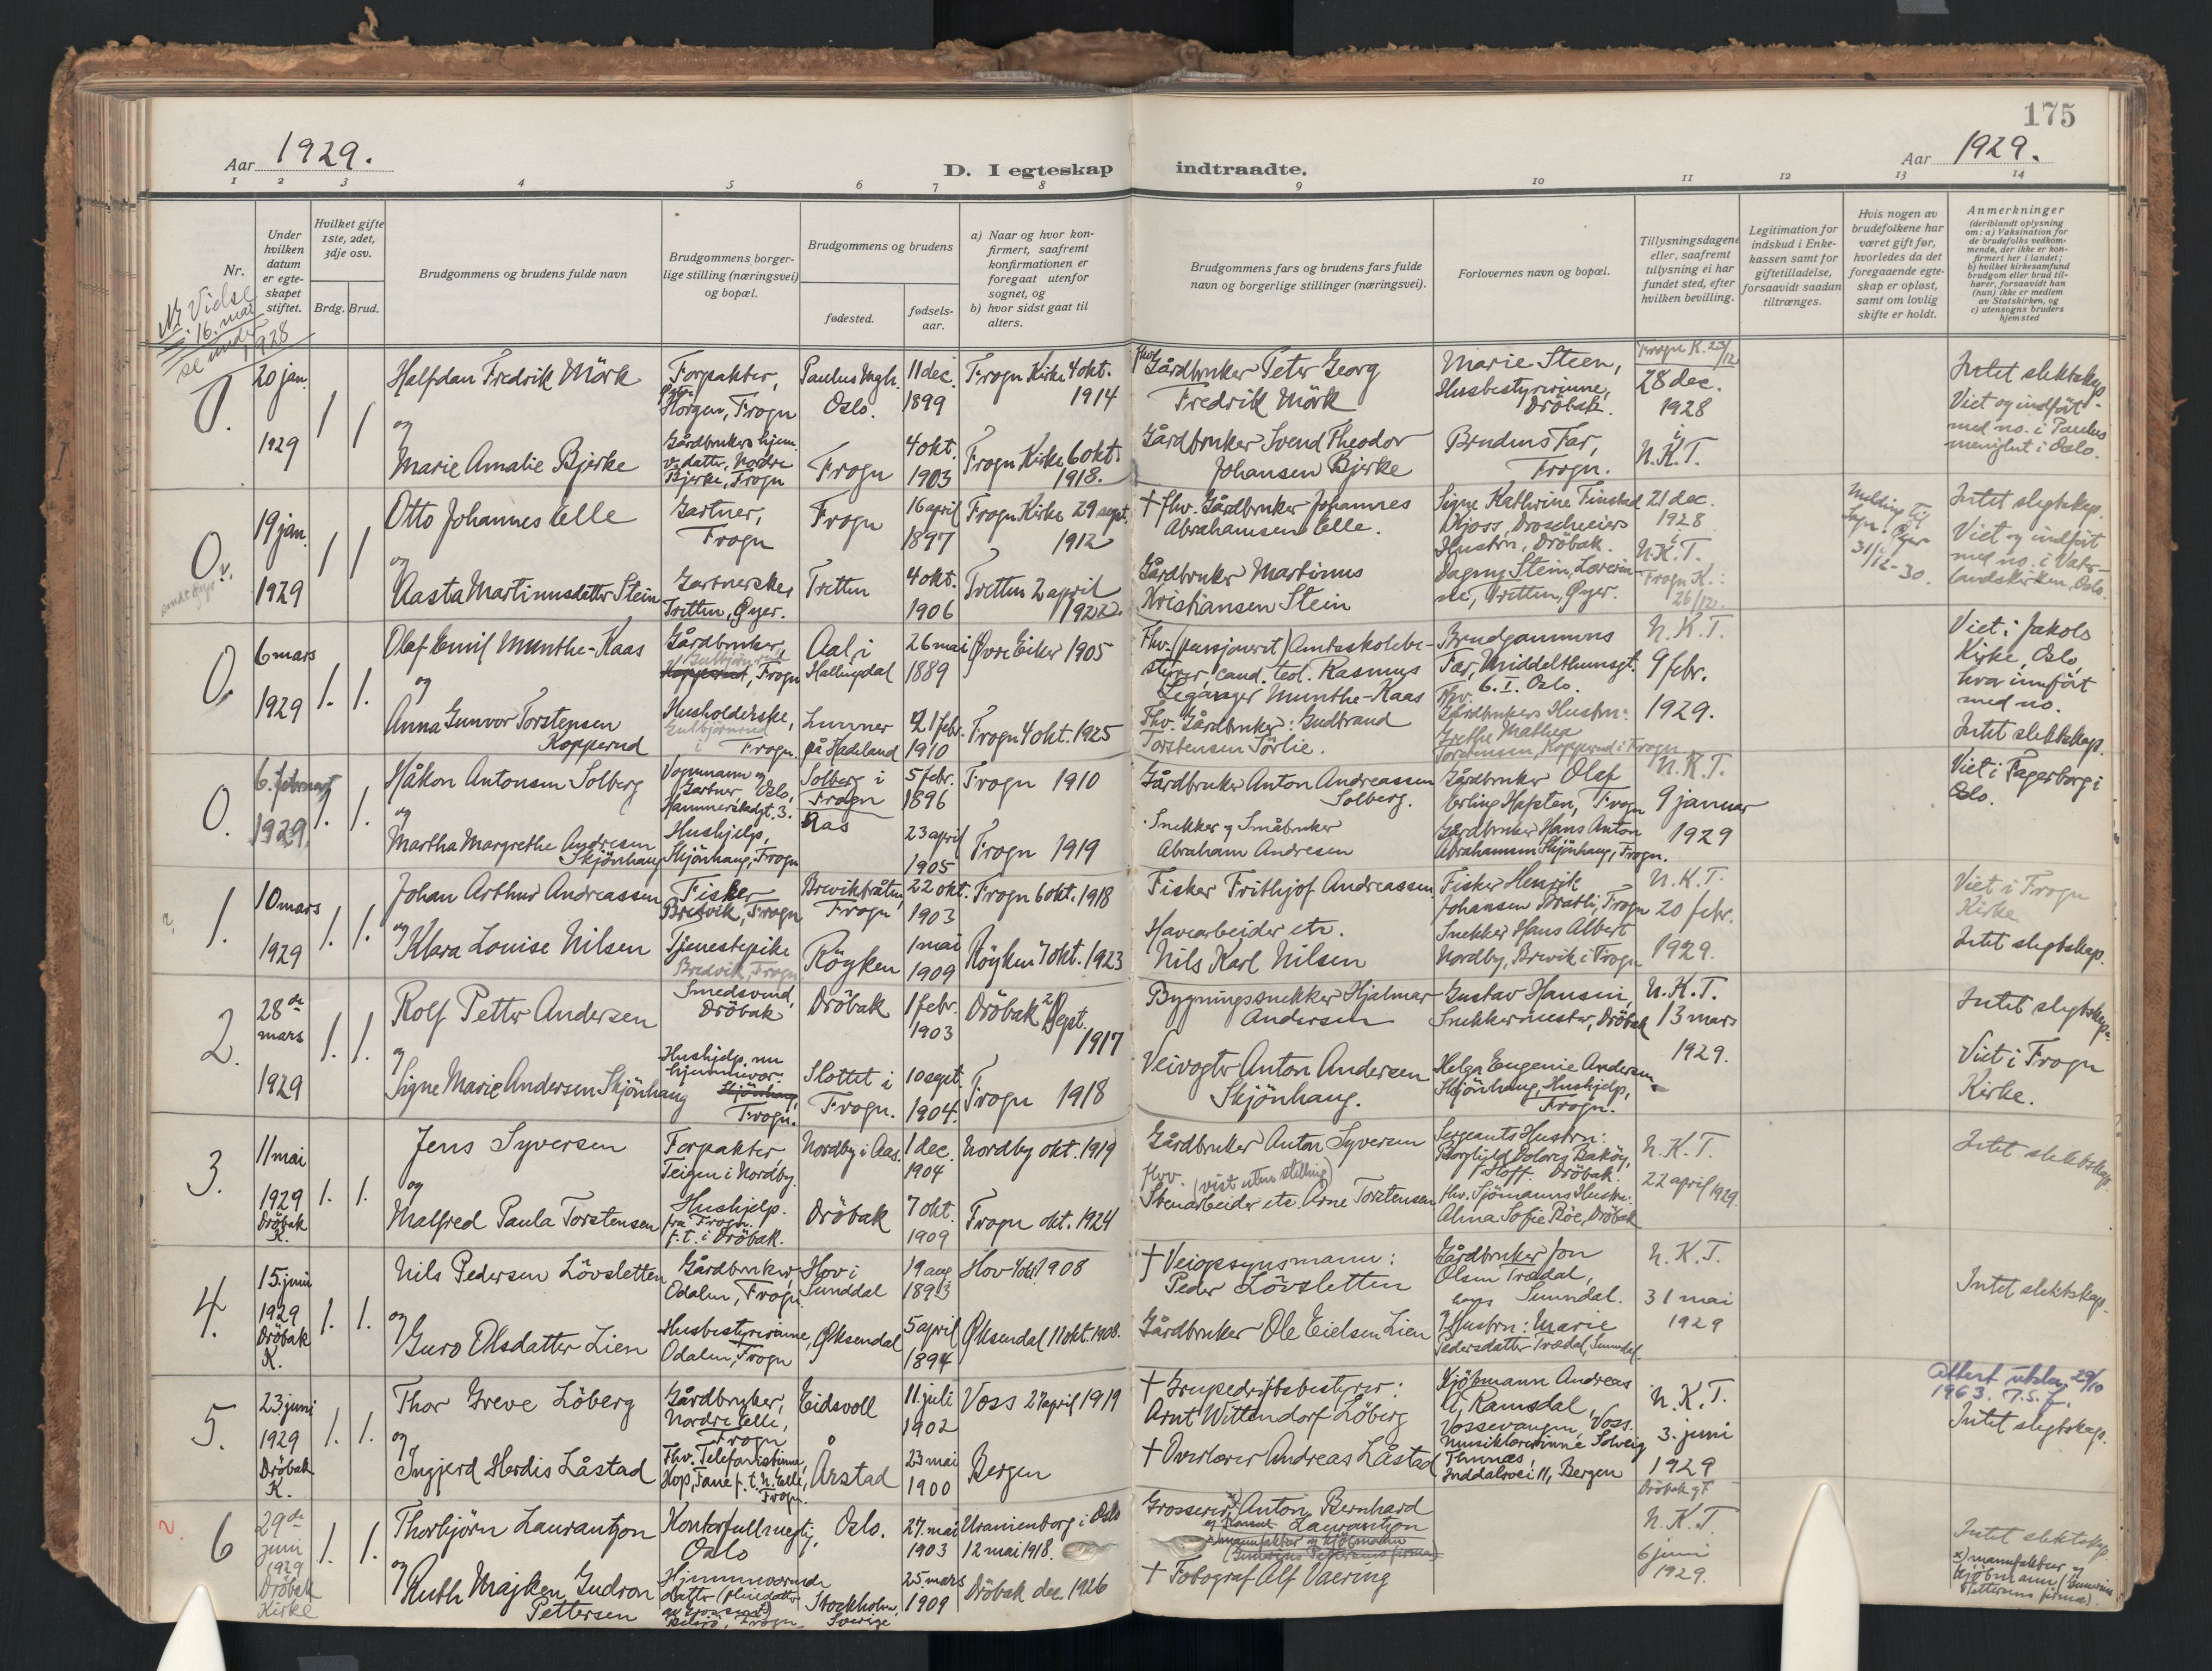 175
Aar 1929.
D. I egteskap indtraadte.
Aar 1929.
1 2 3 4 5 6 7 8 9 10 11 12 13 14
Nr.
Under hvilken datum er egteskapet stiftet.
Hvilket gifte 1ste, 2det, 3dje osv.
Brdg. Brud.
Brudgommens og brudens fulde navn
Brudgommens borgerlige stilling (næringsvei) og bopæl.
Brudgommens og brudens
fødested.
fødselsaar.
a) Naar og hvor konfirmert, saafremt konfirmationen er foregaat utenfor sognet, og
b) hvor sidst gaat til alters.
Brudgommens fars og brudens fars fulde navn og borgerlige stillinger (næringsvei).
Forlovernes navn og bopæl.
Tillysningsdagene eller, saafremt tillysning ei har fundet sted, efter hvilken bevilling.
Legitimation for indskud i Enkekassen samt for giftetilladelse, forsaavidt saadan tiltrænges.
Hvis nogen av brudefolkene har været gift før, hvorledes da det foregaaende egteskap er opløst, samt om lovlig skifte er holdt.
Anmerkninger
(deriblandt oplysning om: a) Vaksination for de brudefolks vedkommende, der ikke er konfirmert her i landet;
b) hvilket kirkesamfund brudgom eller brud tilhører, forsaavidt han (hun) ikke er medlem av Statskirken, og
c) utensogns bruders hjemsted
Vielse
16. mai
se under 1928
0.
20 jan.
1929
1 1
Halfdan Fredrik Mörk
og
Marie Amalie Bjerke
Forpakter,
Horgen, Frogn
Gårdbrukers hjem.
v. datter, Nordre
Bjerke, Frogn
Paulus Mgh.
Oslo.
Frogn
11 dec.
1899
4 okt.
1903
Frogn Kirke 4 okt.
1914
Frogn Kirke 6 okt.
1918.
Fhv. Gårdbruker Peter Georg
Fredrik Mörk
Gårdbruker Svend Theodor
Johansen Bjerke
Marie Steen,
Husbestyrerinne,
Dröbak.
Brudens Far,
Frogn.
Frogn K. 23/12
28 dec.
1928
i
N.K.T.
Intet slektskap.
Viet og indfört
med no. i Paulus
menighet i Oslo.
0.
19 jan.
1929
1 1
Otto Johannes Elle
og
Aasta Martinusdatter Stein
Gartner,
Frogn
Gartnerske,
Tretten, Øyer.
Frogn
Tretten
16 april
1897
4 okt.
1906
Frogn Kirke 29 sept.
1912
Tretten 2 april
1922.
† fhv. Gårdbruker Johannes
Abrahamsen Elle.
Gårdbruker Martinus
Kristiansen Stein
Signe Kathrine Finstad
Kjoss, Droscheeiers
Hustru, Dröbak.
Dagny Stein, Lærerin-
ne, Tretten, Øyer.
21 dec.
1928
i
N.K.T.
Frogn K.:
26/12.
Melding til
Sogn. Øyer
31/12-30.
Intet slegtskap.
Viet og indfört
med no. i Vater-
landskirken, Oslo.
0.
6 mars
1929
1. 1.
Olaf Emil Munthe-Kaas
og
Anna Gunvor Torstensen
Kopperud
Gårdbruker,
Gulbjörnrud
Kopperud, Frogn
Husholderske,
Gulbjörnrud
i Frogn.
Aal i
Hallingdal
Lunner
på Hadeland
26 mai
1889
21 febr.
1910
Øvre Eiker 1905
Frogn 4 okt. 1925
Fhv. (pensjonert) Amtsskolebe-
styrer, cand. teol. Rasmus
Legånger Munthe-Kaas
Fhv. Gårdbruker: Gudbrand
Torstensen Törlie.
Brudgommens
Far, Middelthunsgt.
6. I. Oslo.
Fhv. Gårdbrukers Hustru:
Grethe Mathea
Torstensen, Kopperud i Frogn
N.K.T.
9 febr.
1929.
Viet i Jakobs
Kirke, Oslo,
hvor innfört
med no.
Intet slektskap.
0.
6. februar
1929
1. 1.
Håkon Antonsen Solberg
og
Martha Margrethe Andresen
Skjönhaug
Vognmann og
Gartner Oslo,
Hammerstadgt. 3.
Hushjelp,
Skjönhaug, Frogn
Solberg i
Frogn
Aas
5 febr.
1896
23 april
1905
Frogn 1910
Frogn 1919
Gårdbruker Anton Andreassen
Solberg.
Snekker og Småbruker
Abraham Andresen
Gårdbruker Olaf
Erling Hafsten, Frogn
Gårdbruker Hans Anton
Abrahamsen Skjönhaug, Frogn.
N.K.T.
9 januar
1929
Viet i Fagerborg i
Oslo.
1.
10 mars
1929
1. 1.
Johan Arthur Andreassen
og
Klara Louise Nilsen
Fisker
Bredvik, Frogn
Tjenestepike
Bredvik, Frogn
Brevikbråten,
Frogn
Röyken
22 okt.
1903
1 mai
1909
Frogn 6 okt. 1918
Röyken 7 okt. 1923
Fisker Frithjof Andreassen
Havearbeider etc.
Nils Karl Nilsen
Fisker Henrik
Johansen Bratli, Frogn
Snekker Hans Albert
Nordby, Brevik i Frogn
N.K.T.
20 febr.
1929.
Viet i Frogn
Kirke
Intet slegtskap.
2.
28de
mars
1929
1. 1.
Rolf Petter Andersen
og
Signe Marie Andersen Skjönhaug
Smedsvend,
Dröbak
Hushjelp, nu
hjemmevær.
Skjönhaug,
Frogn.
Dröbak
Slottet i
Frogn.
1 febr.
1903
10 sept.
1904.
Dröbak Sept.
1917
Frogn 1918
Bygningssnekker Hjalmar
Andersen
Veivogter Anton Andersen
Skjönhaug.
Gustav Hansen,
Snekkermester, Dröbak
Helga Eugenie Andersen
Skjönhaug, Hushjelp,
Frogn.
N.K.T.
13 mars
1929.
Intet slegtskap.
Viet i Frogn
Kirke.
3.
11 mai
1929
Dröbak
K.
1. 1.
Jens Syversen
og
Malfred Paula Torstensen
Forpakter,
Teigen i Nordby.
Hushjelp.
fra Frogn.
f.t. i Dröbak.
Nordby i Aas.
Dröbak
1 dec.
1904
7 okt.
1909
Nordby okt. 1919
Frogn okt. 1924
Gårdbruker Anton Syversen
Fhv. (vist uten stilling)
Stenarbeider etc. Arne Torstensen
Sergeants Hustru:
Borghild Dolores Baköy,
f. Hoff. Dröbak.
Fhv. Sjömanns Hustru:
Alma Sofie Röe, Dröbak
N.K.T.
22 april 1929.
Intet slektskap.
4.
15. juni
1929
Dröbak
K.
1. 1.
Nils Pedersen Lövsletten
og
Guro Olsdatter Lien
Gårdbruker,
Odalen, Frogn.
Husbestyrerinne,
Odalen, Frogn
Hov i
Sunddal
Øksendal
19 aug
1893
5 april
1894
Hov 4 okt. 1908
Øksendal 11 okt. 1908.
† Veiopsynsmann:
Peder Lövsletten
Gårdbruker Ole Eielsen Lien
Gårdbruker Jon
Olsen Trædal,
Sunndal.
og Hustru: Marie
Pedersdatter Trædal, Sunndal.
N.K.T.
31 mai
1929
Intet slektskap.
5.
23. juni
1929
Dröbak
K.
1. 1.
Thor Greve Löberg
og
Ingjerd Herdis Låstad
Gårdbruker,
Nordre Elle,
Frogn
Fhv. Telefonistinne,
Hop, Fane f.t. N. Elle,
Frogn.
Eidsvoll
Årstad
11. juli
1902
23 mai
1900
Voss 27 april 1919
Bergen
† Grupedriftsbestyrer:
Arnt Wittendorf Löberg
† Overlærer Andreas Låstad
Kjöbmann Andreas
A. Ramsdal,
Vossevangen, Voss.
Musiklærerinne Solveig
Thunæs,
Inddalsvei 11, Bergen
N.K.T.
3. juni
1929
Attest utsten. 29/10
1963. T.S.f.
Intet slegtskap.
6
29de
juni
1929
Dröbak
Kirke
1. 1.
Thorbjörn Laurantzon
og
Ruth Majken Gudron
Pettersen
Kontorfullmegtig,
Oslo
Hjemmeværende
datter (pleiedatter
Frogn
Oslo.
Stockholm,
Sverige
27. mai
1903
25. mars
1909
Uranienborg i Oslo
12 mai 1918.
Dröbak dec. 1926
Grosserer Anton Bernhard
Laurantzon
† Fotograf Alf Vaering
Dröbak
N.K.T.
6 juni
1929.
Intet slektskap.
x) manufaktur og
kjöbmann (Gunerius
Pettersens firma).